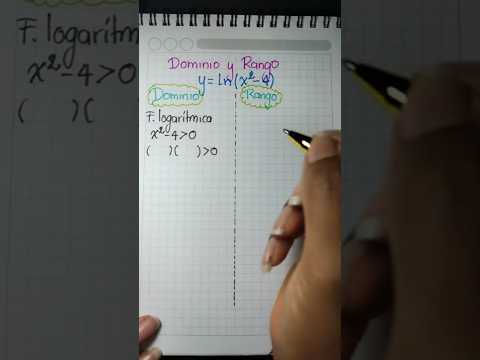 F. logarítm
x²-4>0
( ) (
Dominio y Rango
y = Ln(x²-4)
Dominio
Rango
F. logarítmica
x²-4>0
( ) ( ) >0